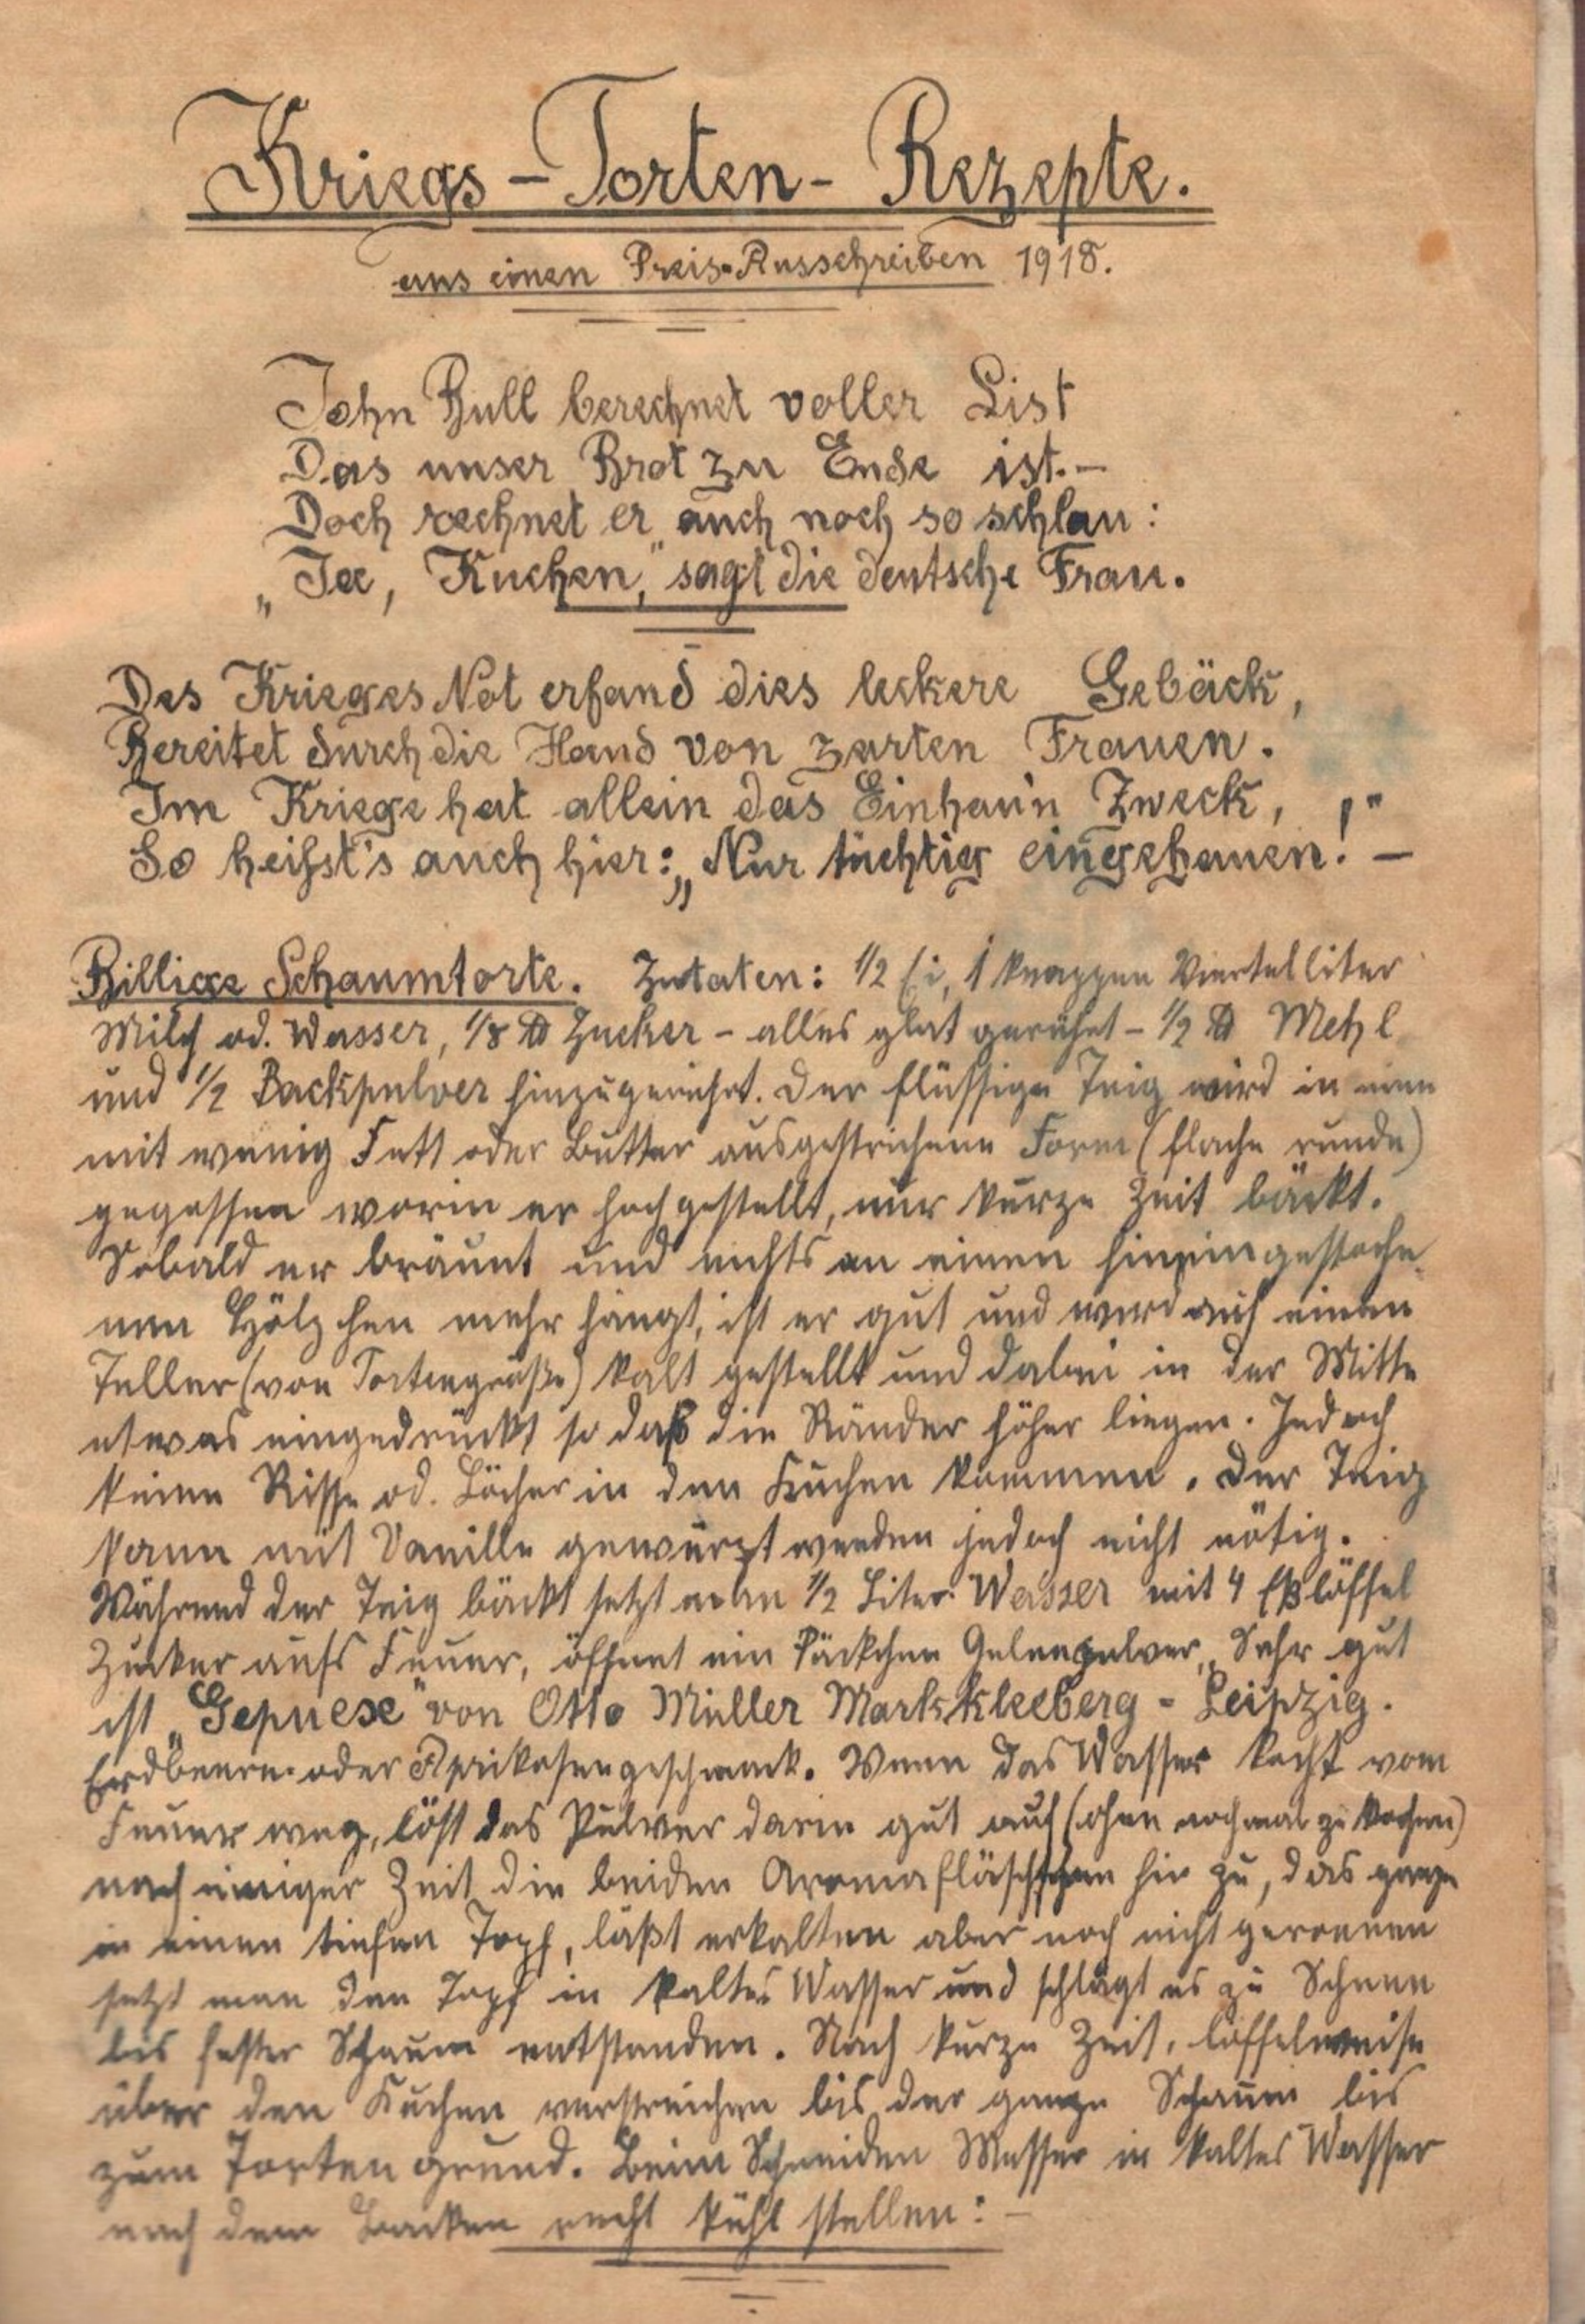 Kriegs-Torten-Rezepte.
aus einen Preis-Ausschreiben 1918.
John Bull berechnet voller List
Das unser Brot zu Ende ist.-
Doch rechnet er auch noch so schlau:
„Ja, Kuchen," sagt die deutsche Frau.
Des Krieges Not erfand dies leckere Gebäck,
Bereitet durch die Hand von zarten Frauen.
Im Kriege hat allein das Einhau'n Zweck,
So heißt's auch hier: „Nur tüchtig eingehauen!" -
Billige Schaumtorte. Zutaten: 1/2 Ei, 1 knappen Viertelliter
Milch od. Wasser, 1/8 ℔ Zucker - alles glat gerührt - 1/2 ℔ Mehl
und 1/2 Backpulver hinzugerührt. Der flüssige Teig wird in eine
mit wenig Fett oder Butter ausgestrichene Form (flache runde)
gegossen worin er hochgestellt, nur kurze Zeit bäckt.
Sobald er bräunt und nichts an einen hineingestoche-
nen Hölzchen mehr hängt, ist er gut und wird auf einen
Teller (von Tortengröße) kalt gestellt und dabei in der Mitte
etwas eingedrückt so daß die Ränder höher liegen. Jedoch
keine Risse od. Löcher in den Kuchen kommen. Der Teig
kann mit Vanille gewürzt werden jedoch nicht nötig.
Während der Teig bäckt setzt man 1/2 Liter Wasser mit 4 Eßlöffel
Zucker aufs Feuer, öffnet ein Päckchen Geleepulver, Sehr gut
ist „Gepuese" von Otto Müller Markkleeberg - Leipzig.
Erdbeere- oder Aprikosengeschmack. Wenn das Wasser kocht vom
Feuer weg, löst das Pulver darin gut auf (ohne nochmal zu kochen)
nach einiger Zeit die beiden Aromafläschchen hin zu, das ganze
in einen tiefen Topf, läßt erkalten aber noch nicht geronnen
setzt man den Topf in kaltes Wasser und schlägt es zu Schnee
bis fester Schaum entstanden. Nach kurze Zeit, löffelweise
über den Kuchen verstreichen bis der ganze Schaum bis
zum Tortengrund. Beim Schneiden Messer in kaltes Wasser
nach dem Backen recht kühl stellen: -